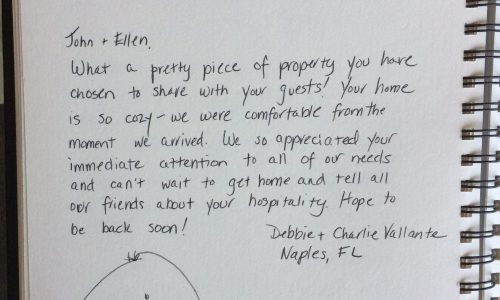 John + Ellen,
What a pretty piece of property you have
chosen to share with your guests! Your home
is so cozy - we were comfortable from the
moment we arrived. We so appreciated your
immediate attention to all of our needs
and can't wait to get home and tell all
our friends about your hospitality. Hope to
be back soon!
Debbie + Charlie Vallante
Naples, FL